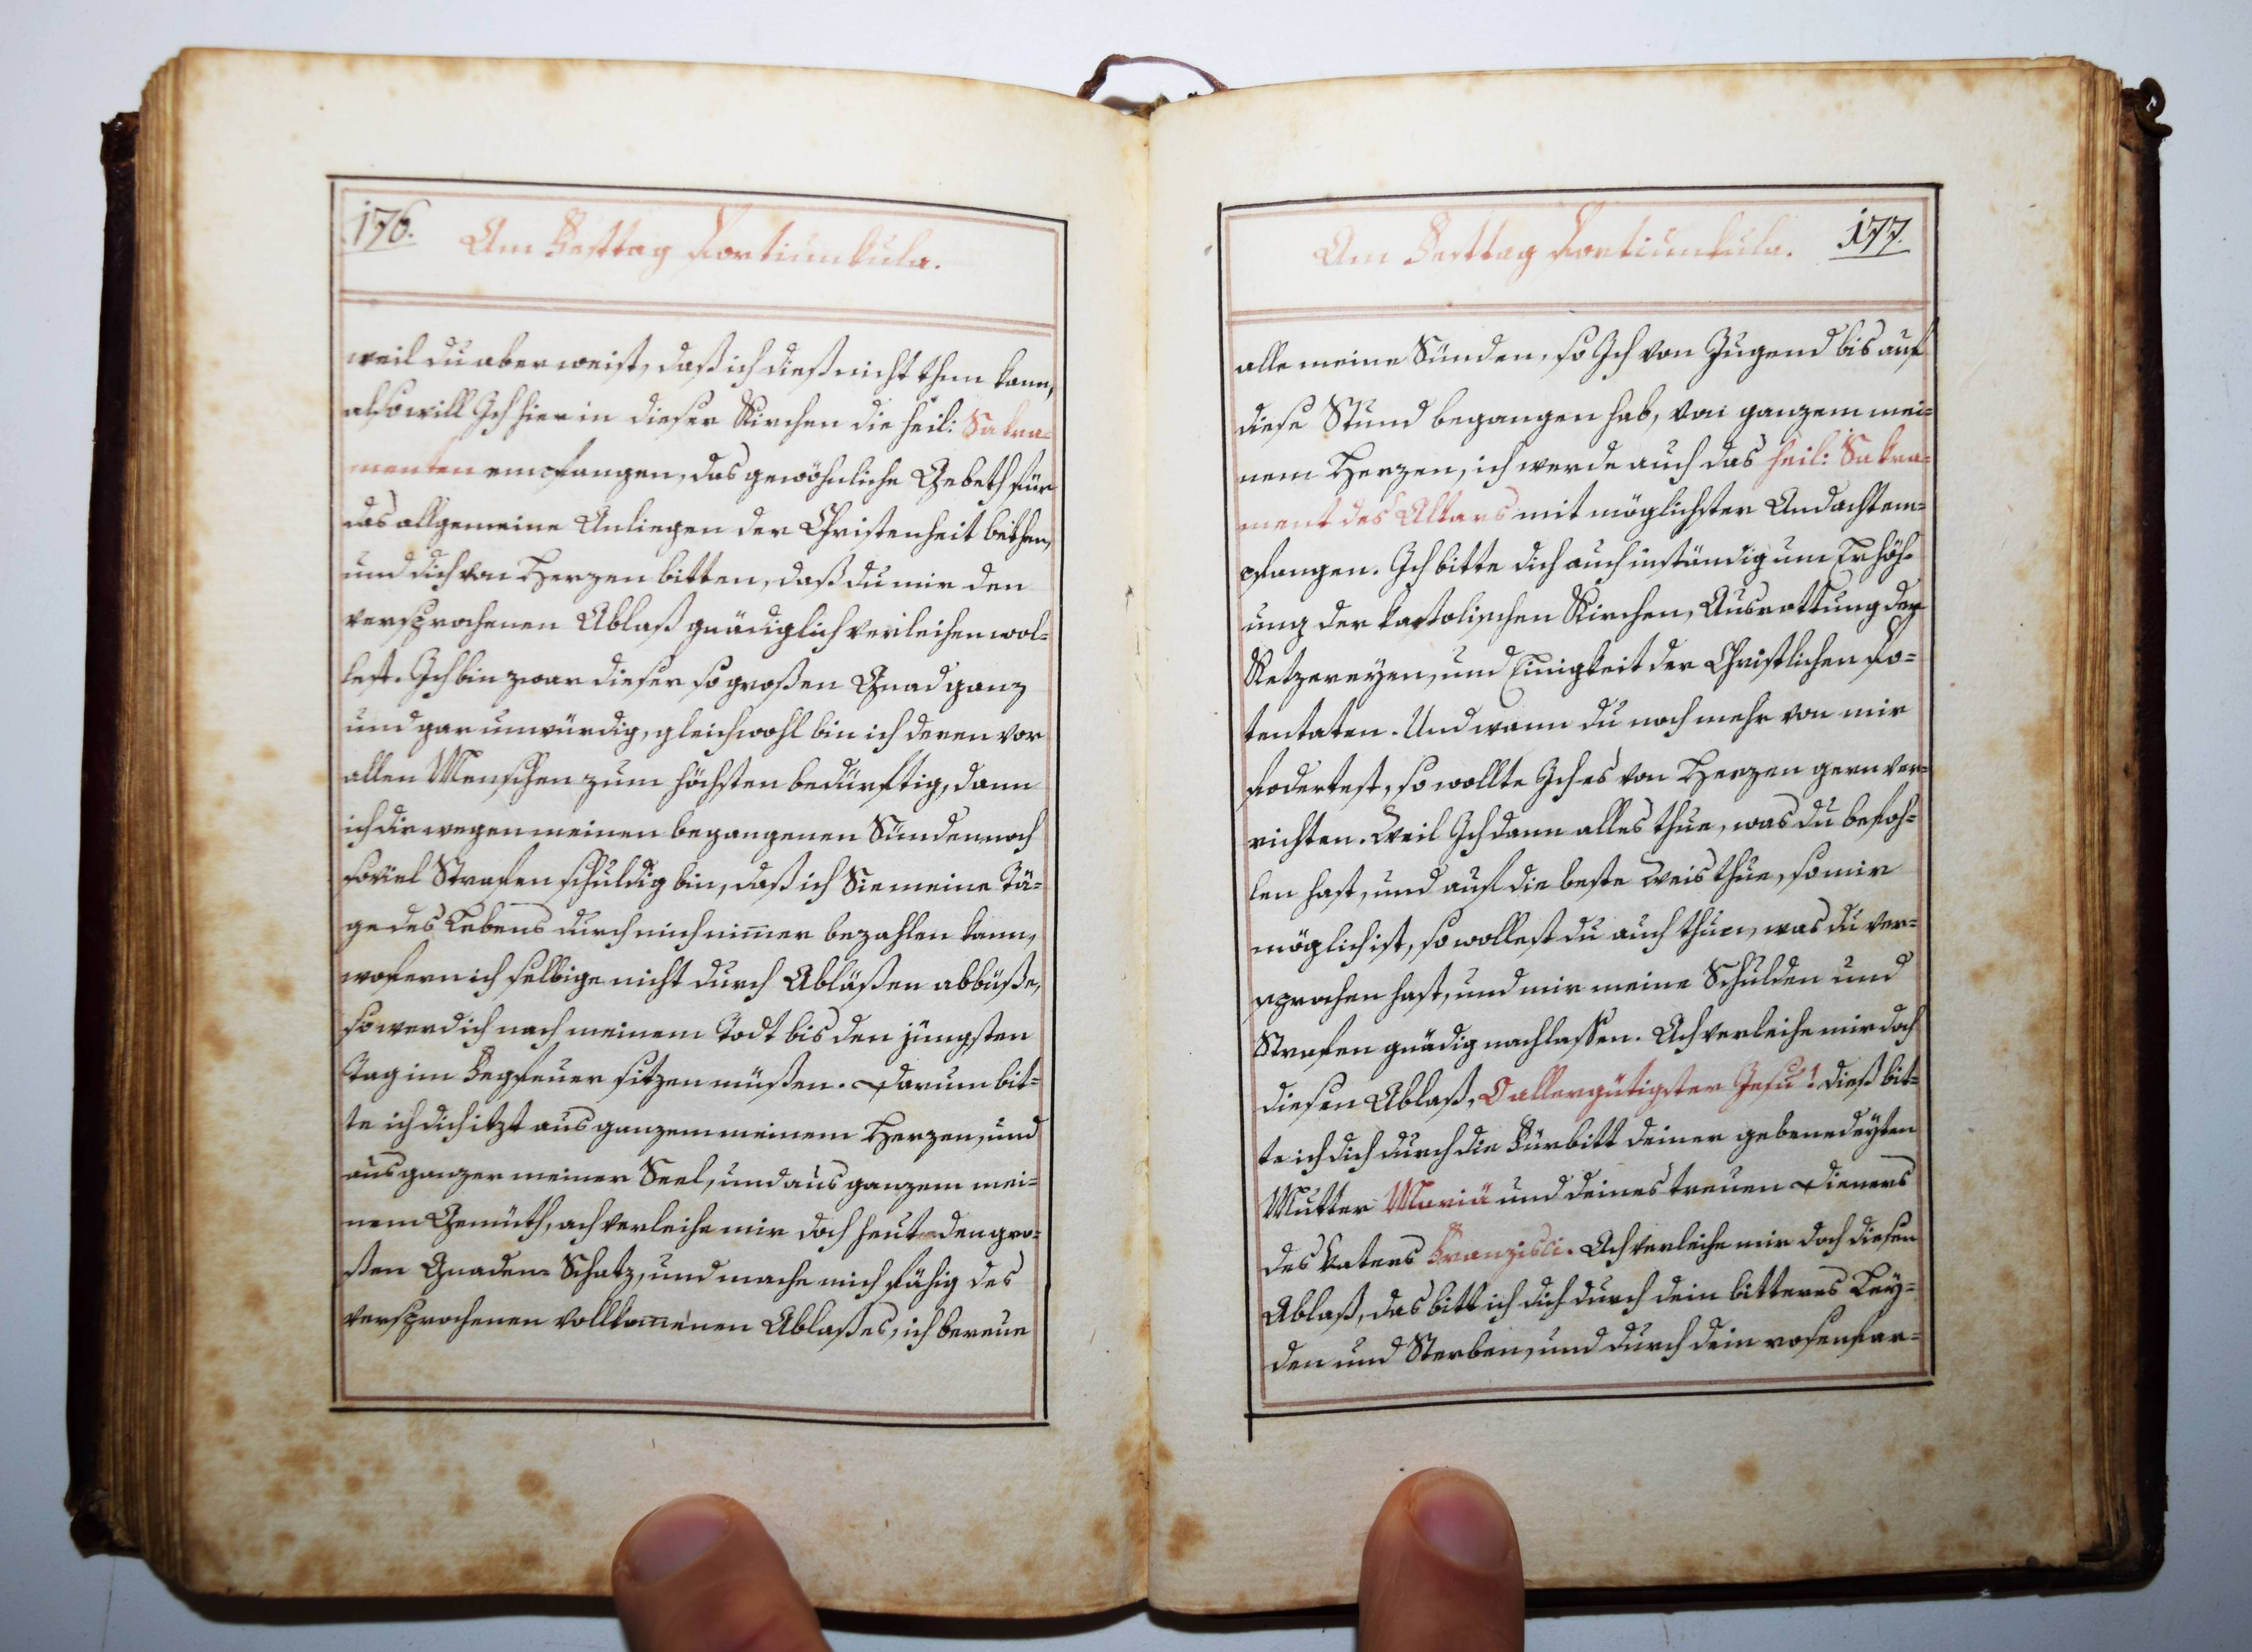 176.
Am Festtag Portiunkula.
weil du aber weist, daß ich dieß nicht thun kann,
also will Ich hier in dieser Kirchen die heil: Sakra=
menten empfangen, das gewöhnliche Gebeth für
das allgemeine Anliegen der Christenheit bethen,
und dich von Herzen bitten, daß du mir den
versprochenen Ablaß gnädiglich verleihen wol=
lest. Ich bin zwar dieser so großen Gnad ganz
und gar unwürdig, gleichwohl bin ich deren vor
allen Menschen zum höchsten bedürftig, dann
ich dir wegen meinen begangenen Sünden noch
soviel Strafen schuldig bin, daß ich Sie meine Tä=
ge des Lebens durch mich nim̅er bezahlen kann,
wofern ich selbige nicht durch Abläßen abbüße,
so werd ich nach meinem Todt bis den jüngsten
Tag im Fegfeuer sitzen müßen. Darum bit=
te ich dich itzt aus ganzem meinem Herzen, und
aus ganzer meiner Seel, und aus ganzem mei=
nem Gemüth, ach verleihe mir doch heut den gro=
ßen Gnaden= Schatz, und mache mich fähig des
versprochenen vollkom̅enen Ablaßes, ich bereue
Am Festtag Portiunkula.
177.
alle meine Sünden, so Ich von Jugend bis auf
diese Stund begangen hab, von ganzem mei=
nem Herzen, ich werde auch das heil: Sakra=
ment des Altars mit möglichster Andacht em=
pfangen. Ich bitte dich auch inständig um Erhöh=
ung der kartolischen Kirchen, Ausrottung der
Ketzereyen, und Einigkeit der Christlichen Po=
tentaten. Und wann du noch mehr von mir
fodertest, so wollte Ich es von Herzen gern ver=
richten. Weil Ich dann alles thue, was du befoh=
len hast, und auf die beste Weis thue, so mir
möglich ist, so wollest du auch thun, was du ver=
sprochen hast, und mir meine Schulden und
Strafen gnädig nachlassen. Ach verleihe mir doch
diesen Ablaß, O allergütigster Jesu! dieß bit=
te ich dich durch die Fürbitt deiner gebenedeyten
Mutter Mariä und deines treuen Dieners
des Vaters Franzisci. Ach verleihe mir doch diesen
Ablaß, das bitt ich dich durch dein bitteres Ley=
den und Sterben, und durch dein rosenfar=